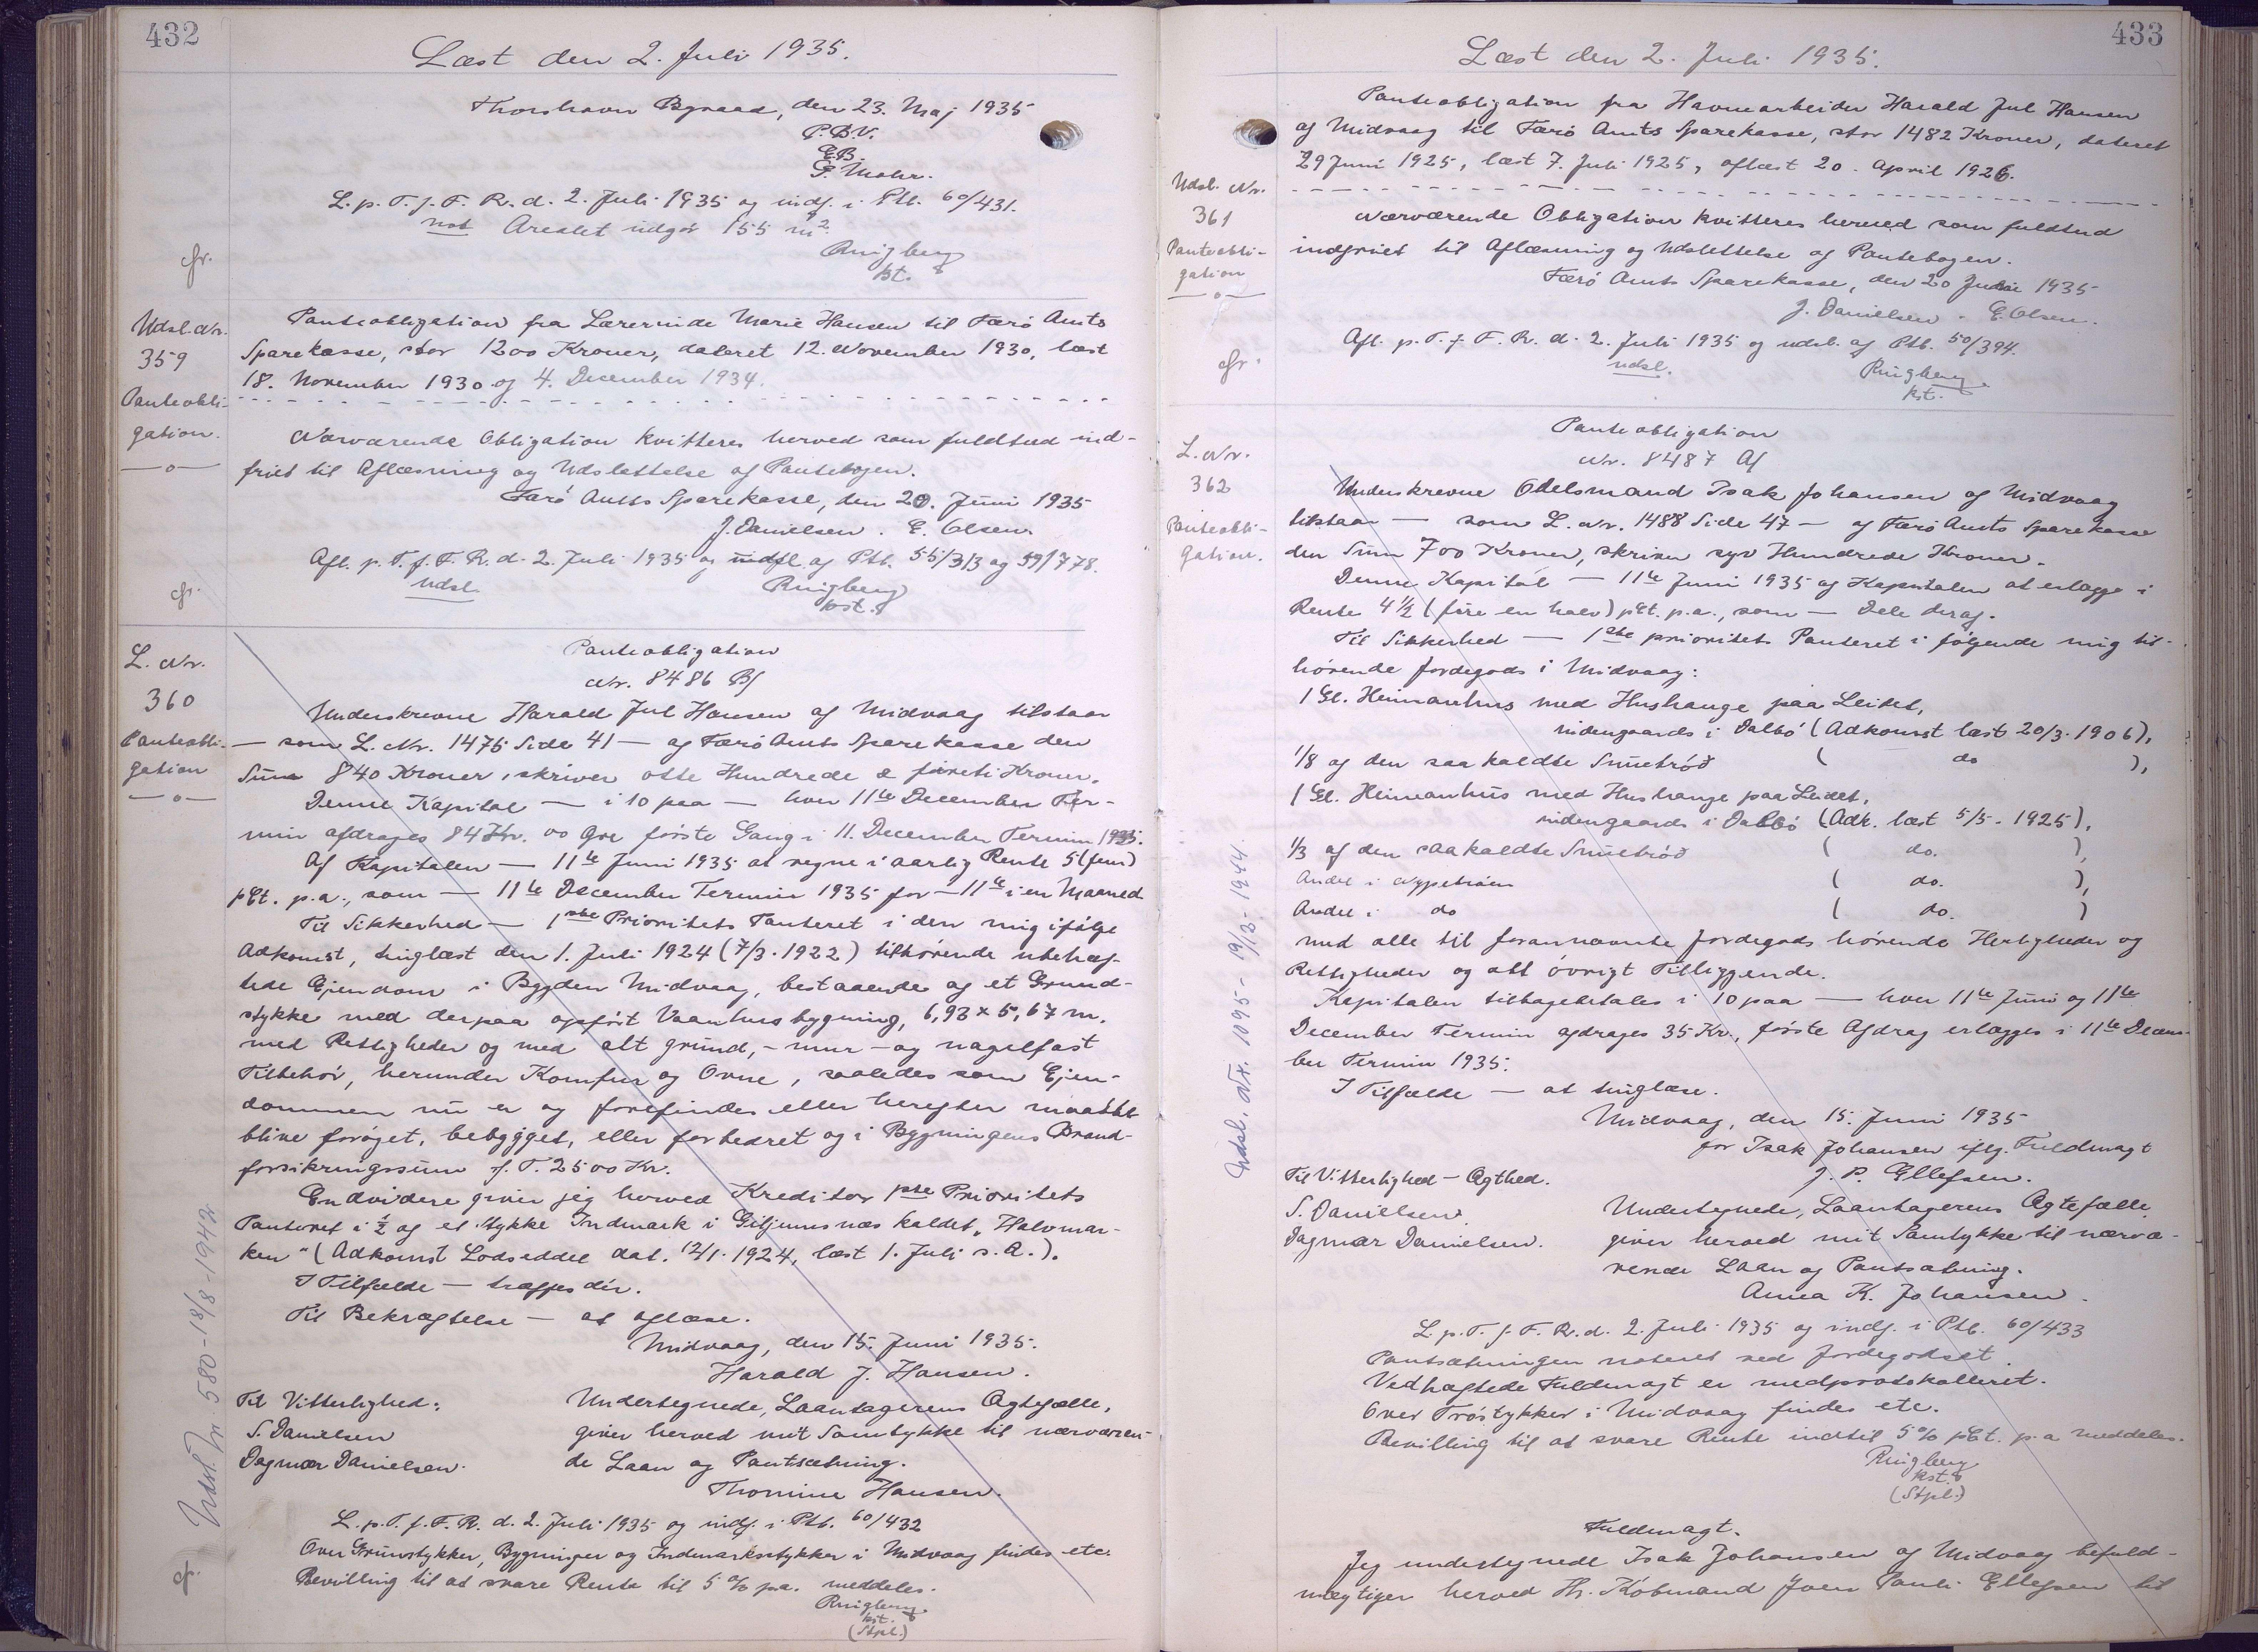 432
Læst den 2. Juli 1935.
Thorshavn Byraad, den 23. Maj 1935
P.B.V.
E.B.
G. Mohr.
L. p. T. f. F. R. d. 2. Juli 1935 og indf. i Ptb. 60/431.
not Arealet udgør 155 m².
Ringberg
kst.
cfr.
Udsl. Nr.
359
Panteobli-
gation.
—o—
Panteobligation fra Lærerinde Marie Hansen til Færø Amts
Sparekasse, stor 1200 Kroner, dateret 12. November 1930, læst
18. November 1930 og 4. December 1934.
Nærværende Obligation kvitteres herved som fuldtud ind-
friet til Aflæsning og Udslettelse af Pantebogen.
Færø Amts Sparekasse, den 20. Juni 1935
J. Danielsen. E. Olsen.
Afl. p. T. f. F. R. d. 2. Juli 1935 og indfl. af Ptb. 55/313 og 59/778.
udsl.
Ringberg
kst.
cfr.
L. Nr.
360
Panteobli-
gation
—o—
Panteobligation
Nr. 8486 B/
Underskrevne Harald Jul Hansen af Midvaag tilstaar
— som L. Nr. 1475 Side 41 — af Færø Amts Sparekasse den
Sum 840 Kroner, skriver otte Hundrede & føreti Kroner.
Denne Kapital — i 10 paa — hver 11te December Ter-
min afdrages 84 Kr. 00 Øre første Gang i 11. December Termin 1935.
Af Kapitalen — 11te Juni 1935 at regne i aarlig Rente 5 (fem)
pCt. p.a., som — 11te December Termin 1935 for — 11te i en Maaned
Til Sikkerhed — 1ste Prioritets Panteret i den mig ifølge
Adkomst, tinglæst den 1. Juli 1924 (7/3. 1922) tilhørende ubehæf-
tede Ejendom i Bygden Midvaag, bestaaende af et Grund-
stykke med derpaa opført Vaanhusbygning, 6,93 x 5,67 m.
med Rettigheder og med alt grund,- mur- og nagelfast
Tilbehør, herunder Komfur og Ovne, saaledes som Ejen-
dommen nu er og forefindes eller herefter maatte
blive forøget, bebygget, eller forbedret og i Bygningens Brand-
forsikringssum f. T. 2500 Kr.
Endvidere giver jeg herved Kreditor 1ste Prioritets
Panteret i ½ af et Stykke Indmark i Giljumsnæs kaldet „Halvmar-
ken" (Adkomst Lodseddel dat. 12/1. 1924, læst 1. Juli s. A.).
I Tilfælde — træffes dér.
Til Bekræftelse — at aflæse.
Midvaag, den 15. Juni 1935.
Harald J. Hansen.
Til Vitterlighed:
S. Danielsen
Dagmar Danielsen.
Undertegnede, Laantagerens Ægtefælle,
giver herved mit Samtykke til nærværen-
de Laan og Pantsætning.
Thomine Hansen.
L. p. T. f. F. R. d. 2. Juli 1935 og indf. i Ptb. 60/432
Over Grundstykker, Bygninger og Indmarksstykker i Midvaag findes etc.
Bevilling til at svare Rente til 5 % pa. meddeles.
Ringberg
kst.
(Stpl.)
Udsl. Nr. 580 - 18/8 - 1942
cfr.
433
Læst den 2. Juli 1935.
Udsl. Nr.
361
Panteobli-
gation
—o—
Panteobligation fra Havnearbejder Harald Jul Hansen
af Midvaag til Færø Amts Sparekasse, stor 1482 Kroner, dateret
29 Juni 1925, læst 7. Juli 1925, aflæst 20. April 1926.
Nærværende Obligation kvitteres herved som fuldtud
indfriet til Aflæsning og Udslettelse af Pantebogen.
Færø Amts Sparekasse, den 20 Juni 1935
J. Danielsen. E. Olsen.
Afl. p. T. f. F. R. d. 2. Juli 1935 og udsl. af Ptb. 50/394.
udsl.
Ringberg
kst.
cfr.
L. Nr.
362
Panteobli-
gation.
Panteobligation
Nr. 8487 A/
Underskrevne Odelsmand Isak Johansen af Midvaag
tilstaar — som L. Nr. 1488 Side 47 — af Færø Amts Sparekasse
den Sum 700 Kroner, skriver syv Hundrede Kroner.
Denne Kapital — 11te Juni 1935 af Kapitalen at erlægge i
Rente 4½ (fire en halv) pCt. p.a., som — Dele deraf.
Til Sikkerhed — 1ste prioritets Panteret i følgende mig til-
hørende Jordegods i Midvaag:
1 Gl. Heimanhus med Hushauge paa Leitet,
nidengaards i Dalbø (Adkomst læst 20/3. 1906),
1/8 af den saakaldte Smuetrød ( do ),
1 Gl. Heimanhus med Hushauge paa Leidet,
nidengaards i Dalbø (Adk. læst 5/5. 1925),
1/3 af den saakaldte Smuetrød ( do. ),
Andel i Nypetrøen ( do. ),
Andel i do ( do. )
med alle til forannævnte Jordegods hørende Herligheder og
Rettigheder og alt øvrigt Tilliggende.
Kapitalen tilbagebetales i 10 paa — hver 11te Juni og 11te
December Termin afdrages 35 Kr., første Afdrag erlægges i 11te Decem-
ber Termin 1935.
I Tilfælde — at tinglæse.
Midvaag, den 15. Juni 1935
for Isak Johansen iflg. Fuldmagt
J. P. Ellefsen.
Til Vitterlighed - Ægthed.
S. Danielsen.
Dagmar Danielsen.
Undertegnede, Laantagerens Ægtefælle
giver herved mit Samtykke til nærvæ-
rende Laan og Pantsætning.
Anna K. Johansen.
L. p. T. f. F. R. d. 2. Juli 1935 og indf. i Ptb. 60/433
Pantsætningen noteret ved Jordegodset.
Vedhæftede Fuldmagt er medprotokolleret.
Over Trøstykker i Midvaag findes etc.
Bevilling til at svare Rente indtil 5 % pCt. p.a meddeles.
Ringberg
kst.
(Stpl.)
Udsl. Nr. 1095 - 19/12 - 1944.
Fuldmagt.
Jeg undertegnede Isak Johansen af Midvaag befuld-
mægtiger herved Hr. Købmand Joen Pauli Ellefsen til